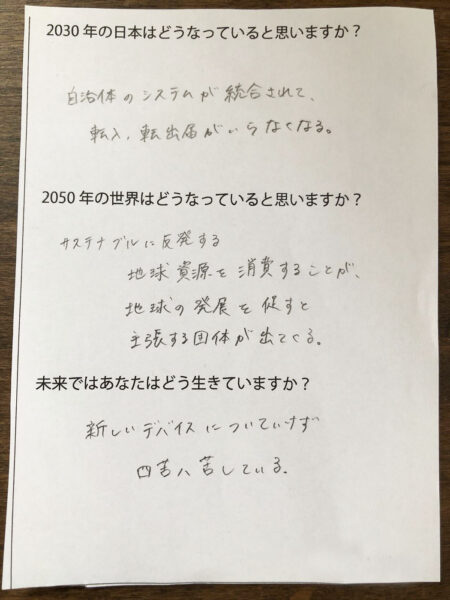 2030 年の日本はどうなっていると思いますか？
自治体のシステムが統合されて、
転入、転出届がいらなくなる。
2050 年の世界はどうなっていると思いますか？
サステナブルに反発する
地球資源を消費することが、
地球の発展を促すと
主張する団体が出てくる。
未来ではあなたはどう生きていますか？
新しいデバイスについていけず
四苦八苦している。